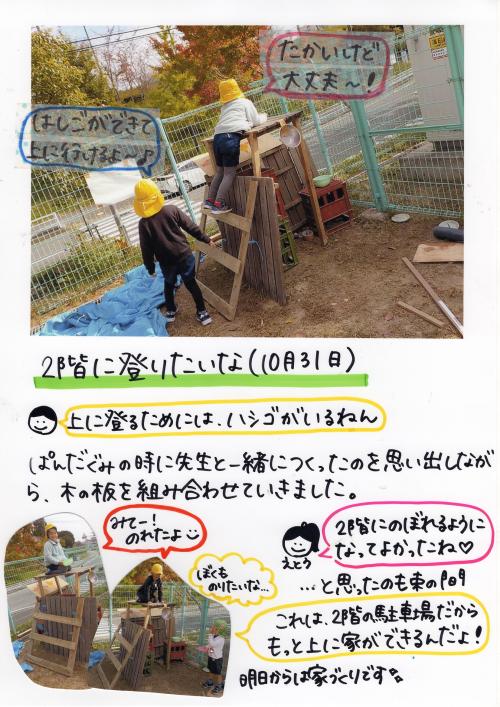 たかいけど
大丈夫~!
はしごができて
上に行けるよ~♪
2階に登りたいな(10月31日)
上に登るためには、ハシゴがいるねん
ぱんだぐみの時に先生と一緒につくったのを思い出しなが
ら、木の板を組み合わせていきました。
みてー!
のれたよ
ぼくも
のりたいな…
2階にのぼれるように
なってよかったね♡
えとう
…と思ったのも束の間
これは、2階の駐車場だから
もっと上に家ができるんだよ!
明日からは家づくりです